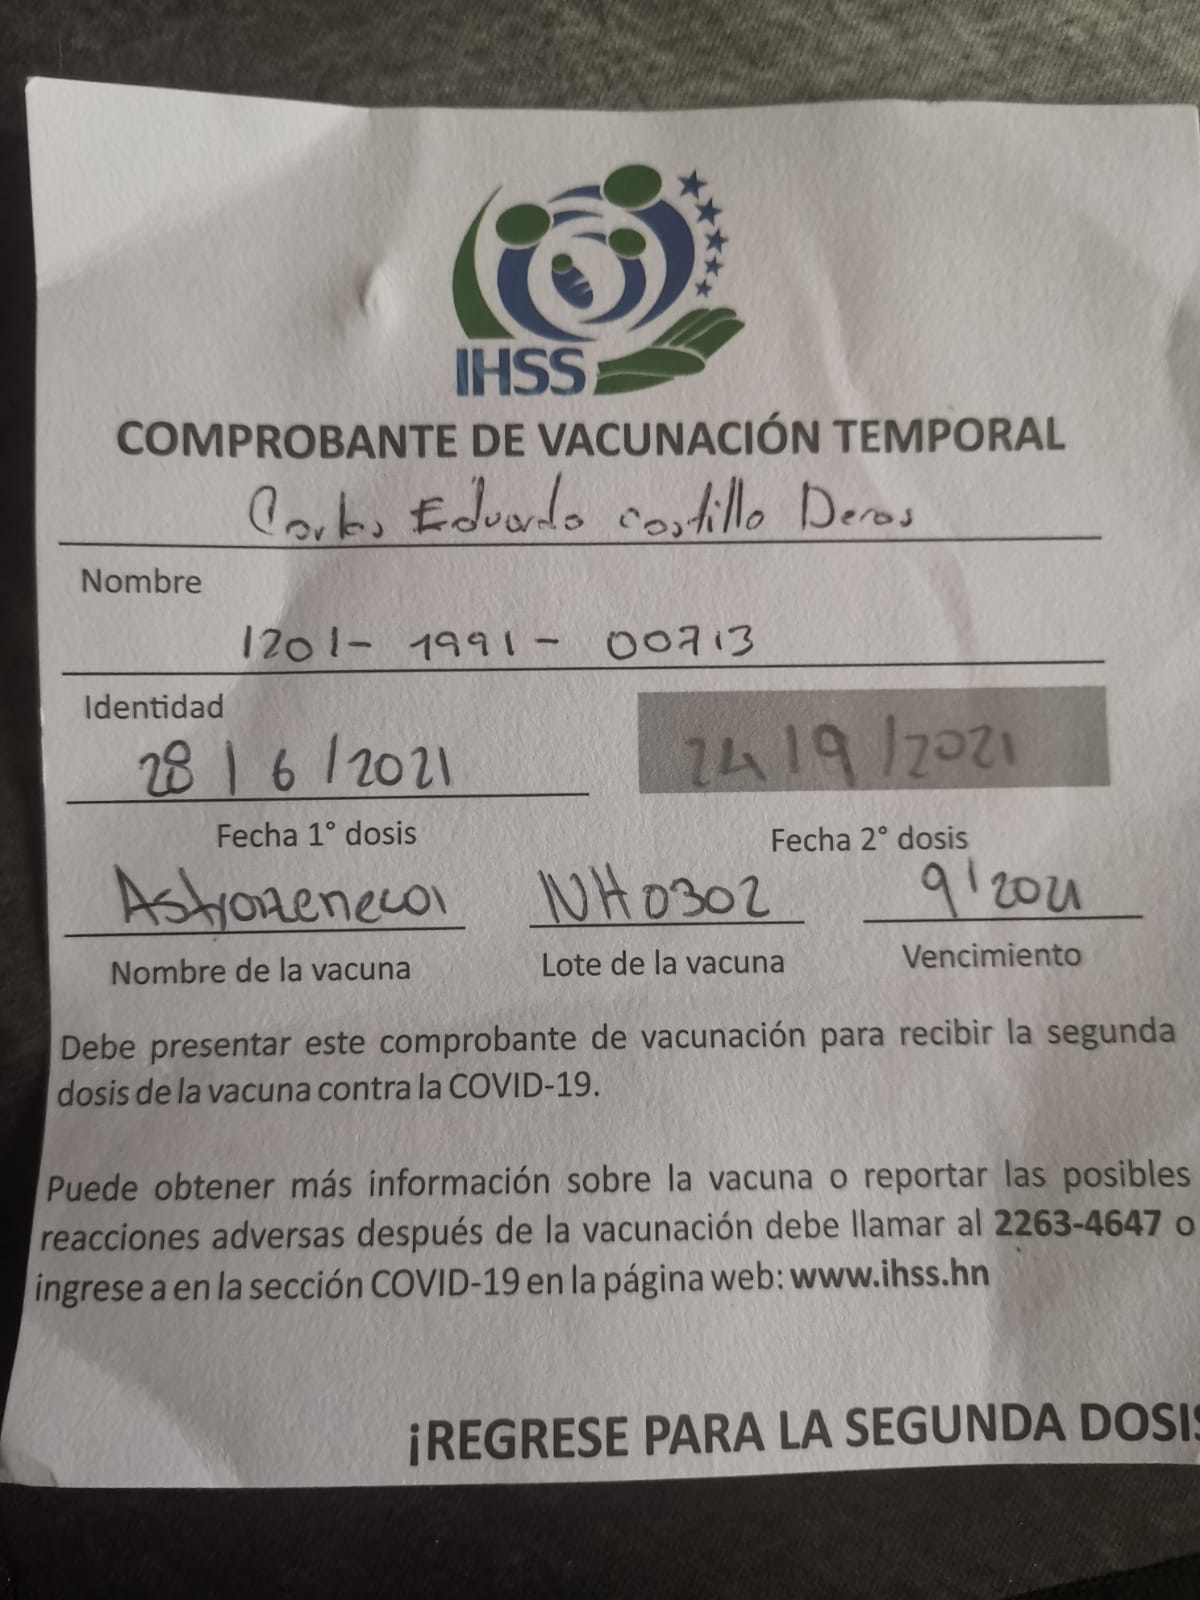 IHSS
COMPROBANTE DE VACUNACIÓN TEMPORAL
Carlos Eduardo Castillo Deras
Nombre
1201- 1991- 00713
Identidad
28 / 6 / 2021 24/9/2021
Fecha 1° dosis Fecha 2° dosis
Astrazeneca NH0302 9/2021
Nombre de la vacuna Lote de la vacuna Vencimiento
Debe presentar este comprobante de vacunación para recibir la segunda
dosis de la vacuna contra la COVID-19.
Puede obtener más información sobre la vacuna o reportar las posibles
reacciones adversas después de la vacunación debe llamar al 2263-4647 o
ingrese a en la sección COVID-19 en la página web: www.ihss.hn
¡REGRESE PARA LA SEGUNDA DOSIS